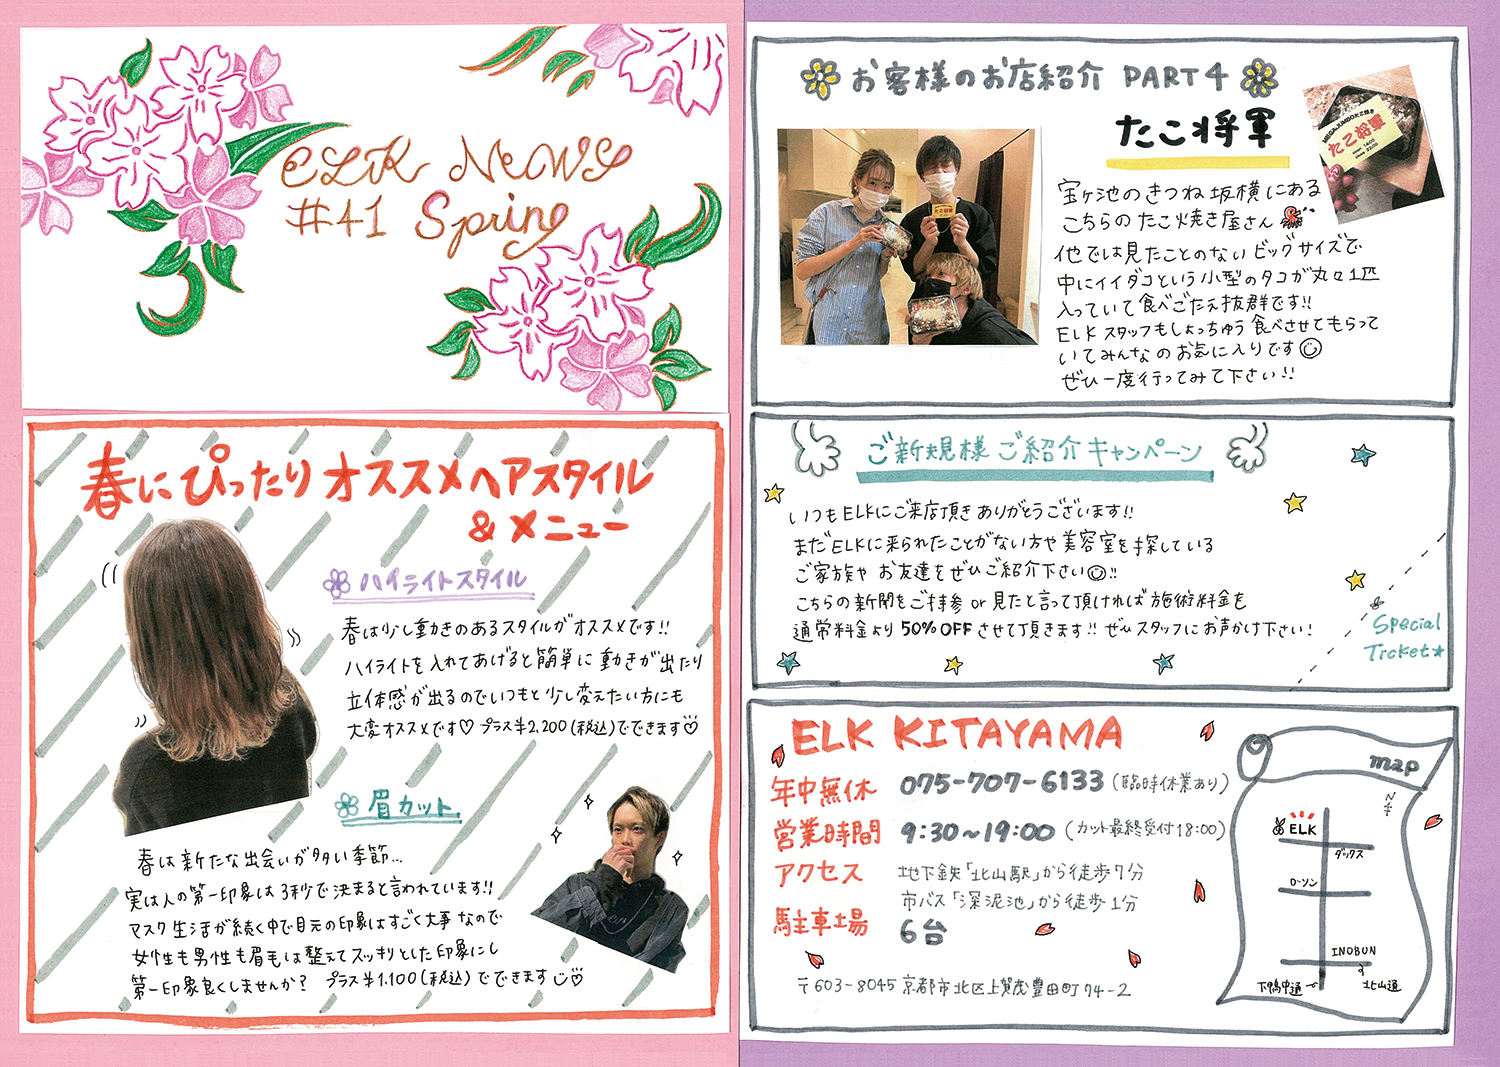 ELK NEWS
#41 Spring
春にぴったりオススメヘアスタイル
&メニュー
ハイライトスタイル
春は少し動きのあるスタイルがオススメです!!
ハイライトを入れてあげると簡単に動きが出たり
立体感が出るのでいつもと少し変えたい方にも
大変オススメです♡ プラス¥2,200(税込)でできます
眉カット
春は新たな出会いが多い季節...
実は人の第一印象は3秒で決まると言われています!!
マスク生活が続く中で目元の印象はすごく大事なので
女性も男性も眉毛は整えてスッキリとした印象にし
第一印象良くしませんか? プラス¥1,100(税込)でできます
お客様のお店紹介 PART4
たこ将軍
MEGA JUMBOたこ焼き
たこ将軍
宝ヶ池のきつね坂横にある
こちらのたこ焼き屋さん
他では見たことのないビッグサイズで
中にイイダコという小型のタコが丸々1匹
入っていて食べごたえ抜群です!!
ELKスタッフもしょっちゅう食べさせてもらって
いてみんなのお気に入りです
ぜひ一度行ってみて下さい!!
ご新規様ご紹介キャンペーン
いつもELKにご来店頂きありがとうございます!!
まだELKに来られたことがない方や美容室を探している
ご家族や お友達をぜひご紹介下さい!!
こちらの新聞をご持参 or 見たと言って頂ければ施術料金を
通常料金より50%OFFさせて頂きます!! ぜひスタッフにお声かけ下さい!
Special
Ticket★
ELK KITAYAMA
年中無休 075-707-6133(臨時休業あり)
営業時間 9:30~19:00 (カット最終受付18:00)
アクセス 地下鉄「北山駅」から徒歩7分
市バス「深泥池」から徒歩1分
駐車場 6台
〒603-8045 京都市北区上賀茂豊田町74-2
map
N
ELK
ダックス
ローソン
INOBUN
下鴨中通
北山通